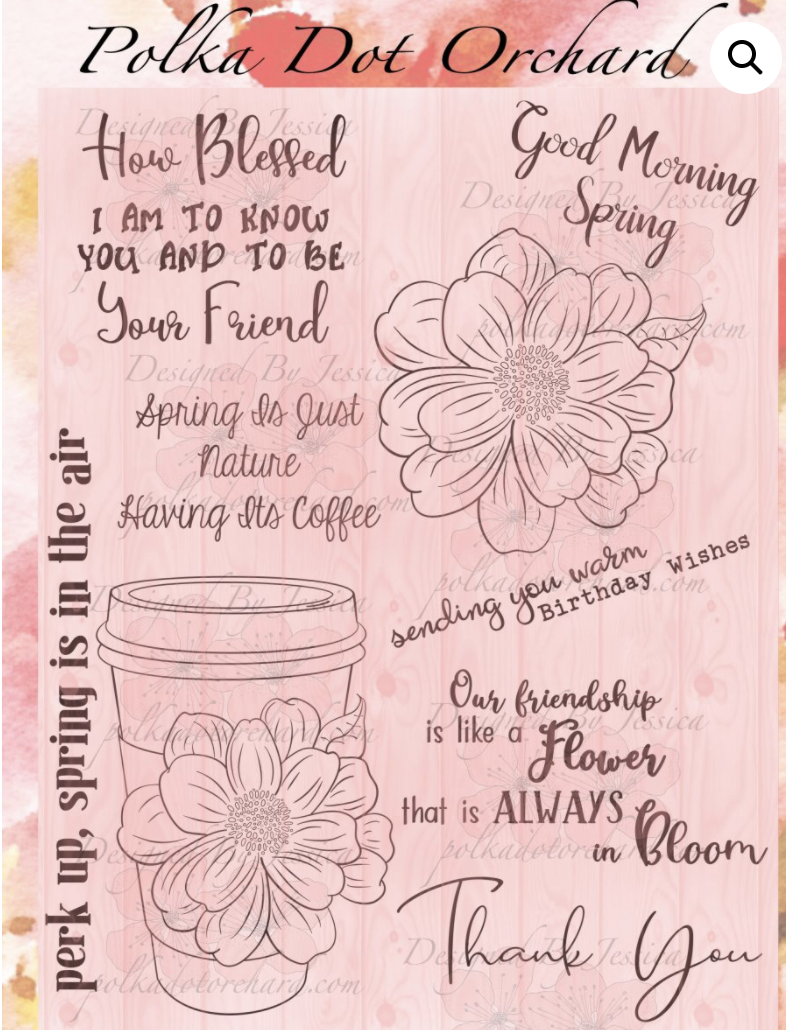 Polka Dot Orchard
How Blessed
I AM TO KNOW
YOU AND TO BE
Your Friend
Good Morning
Spring
Spring Is Just
Nature
Having Its Coffee
perk up, spring is in the air
sending you warm
Birthday Wishes
Our friendship
is like a Flower
that is ALWAYS
in Bloom
Thank You
Designed By Jessica
Designed By Jessica
polkadotorchard.com
Designed By Jessica
Designed By Jessica
polkadotorchard.com
Designed By Jessica
polkadotorchard.com
Designed By Jessica
Designed By Jessica
polkadotorchard.com
Designed By Jessica
polkadotorchard.com